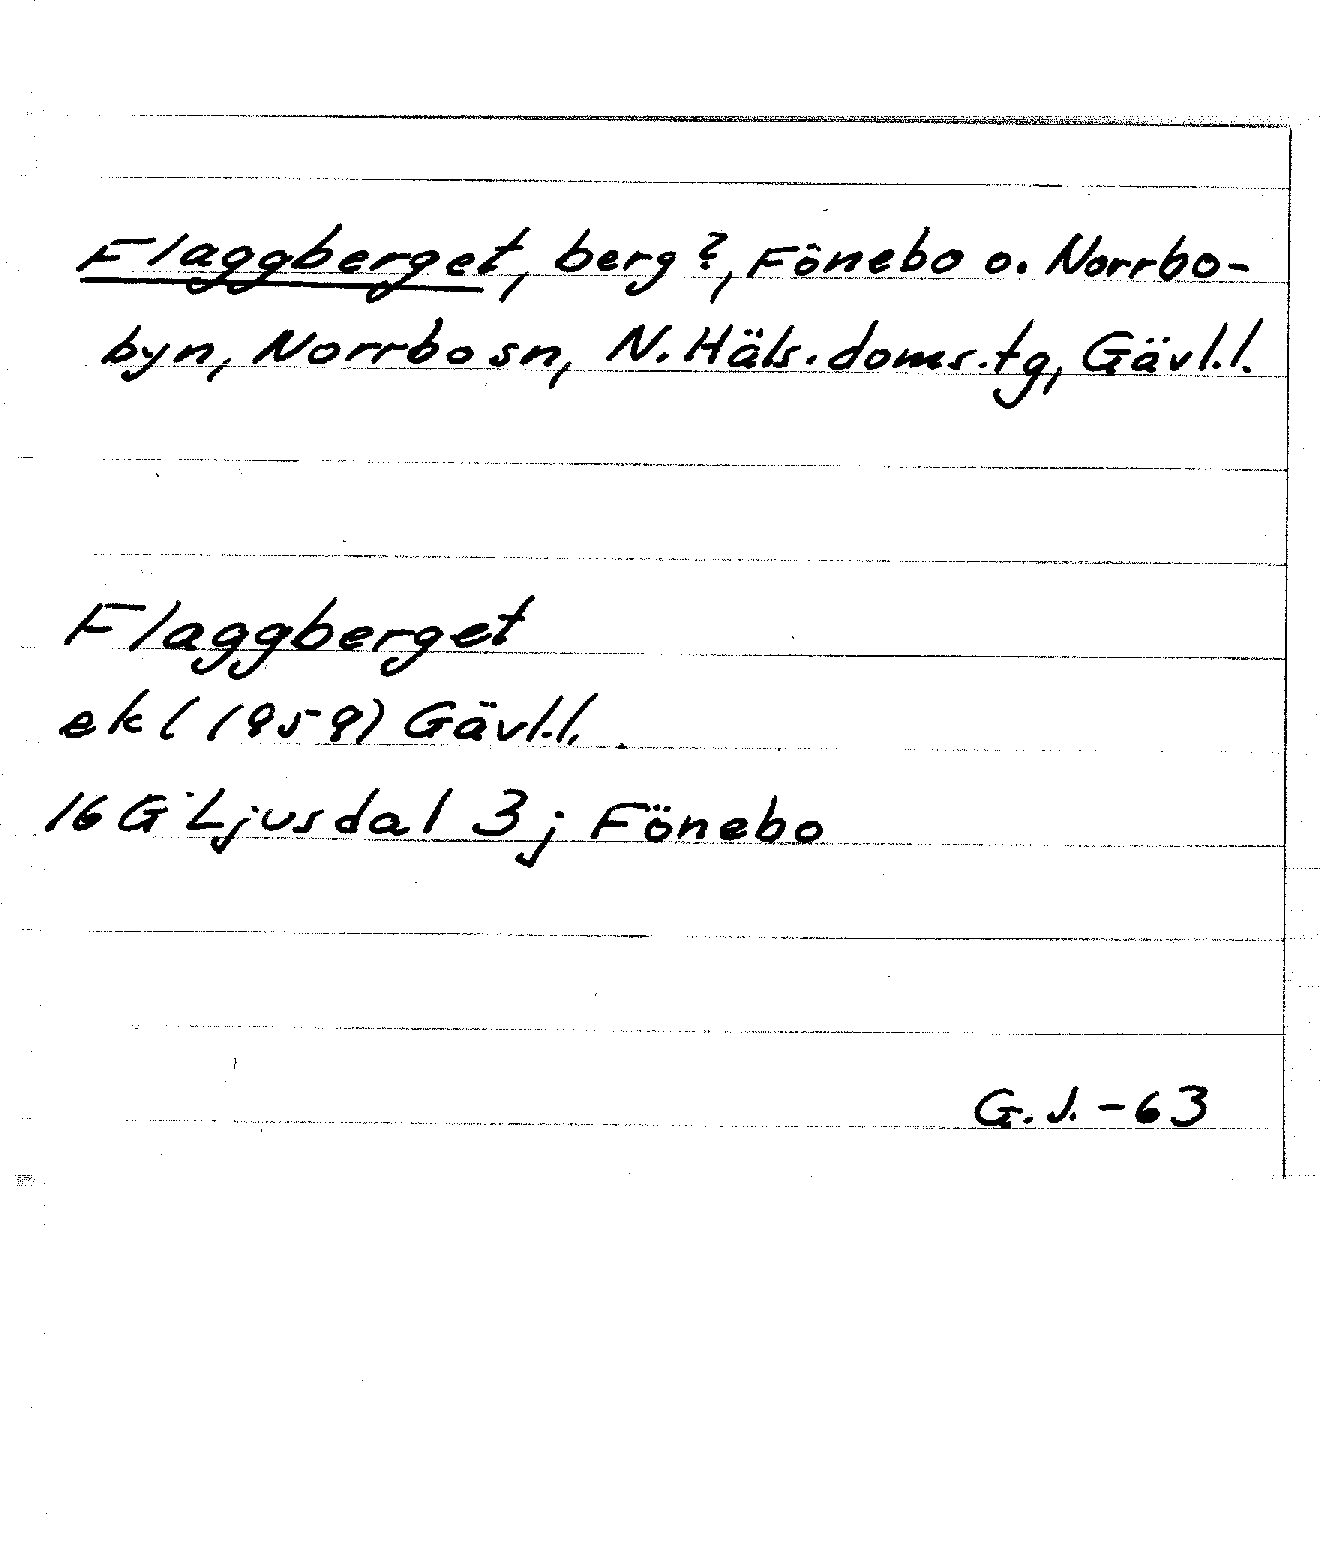 Flaggberget, berg?, Fönebo o. Norrbo-
byn, Norrbo sn, N. Häls. doms.tg, Gävl.l.
Flaggberget
ekl (1959) Gävl.l.
16 G Ljusdal 3 j Fönebo
G.J. -63